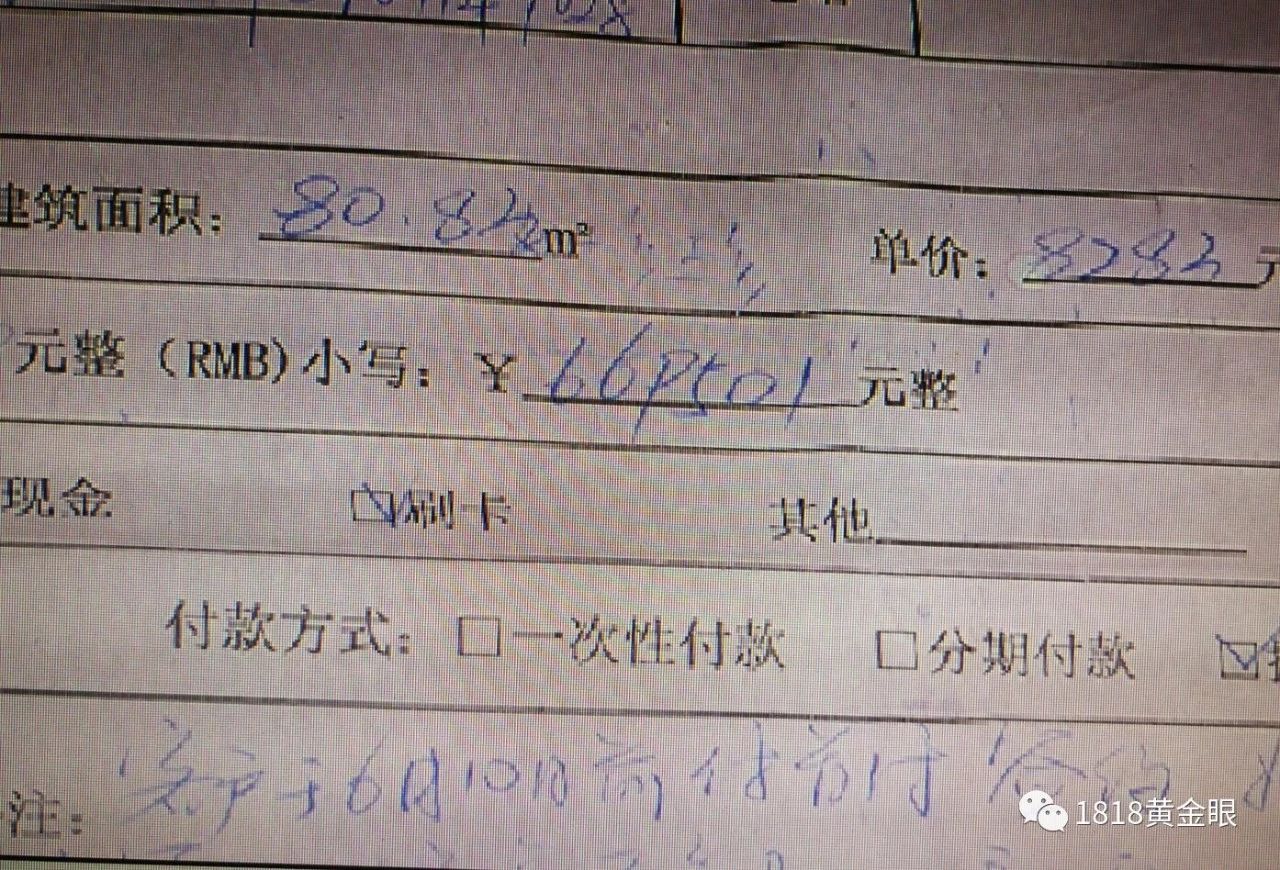 建筑面积：80.82m² 单价：8283元
元整（RMB)小写：￥669501元整
现金 ☑刷卡 其他
付款方式：□一次性付款 □分期付款 ☑
注：客户于6月10日前付首付签约
1818黄金眼